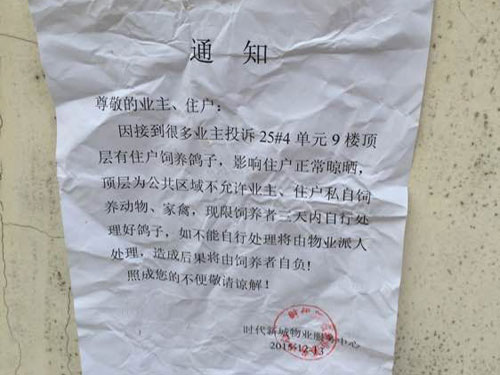 通 知
尊敬的业主、住户：
因接到很多业主投诉 25#4 单元 9 楼顶
层有住户饲养鸽子，影响住户正常晾晒，
顶层为公共区域不允许业主、住户私自饲
养动物、家禽，现限饲养者三天内自行处
理好鸽子，如不能自行处理将由物业派人
处理，造成后果将由饲养者自负!
照成您的不便敬请谅解！
时代新城物业服务中心
2015-12-13